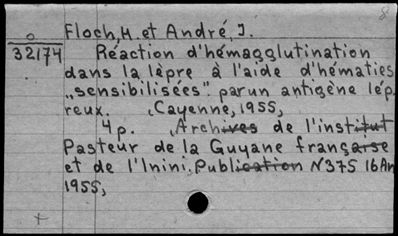 8
Floch, H. et André, J.
0
32174
Réaction d'hémagglutination
dans la lèpre à l'aide d'hématies
„sensibilisées" par un antigène lép
reux. Cayenne, 1955,
4 p. Archives de l'institut
Pasteur de la Guyane française
et de l'Inini. Publication N375 16 An
1955,
+